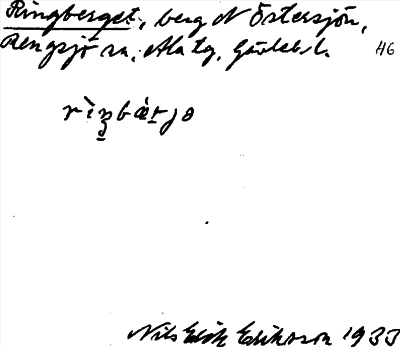 Ringberget, berg N Östersjön,
Rengsjö sn, Ala tg, Gävlebl. 46
Nils Erik Eriksson 1933